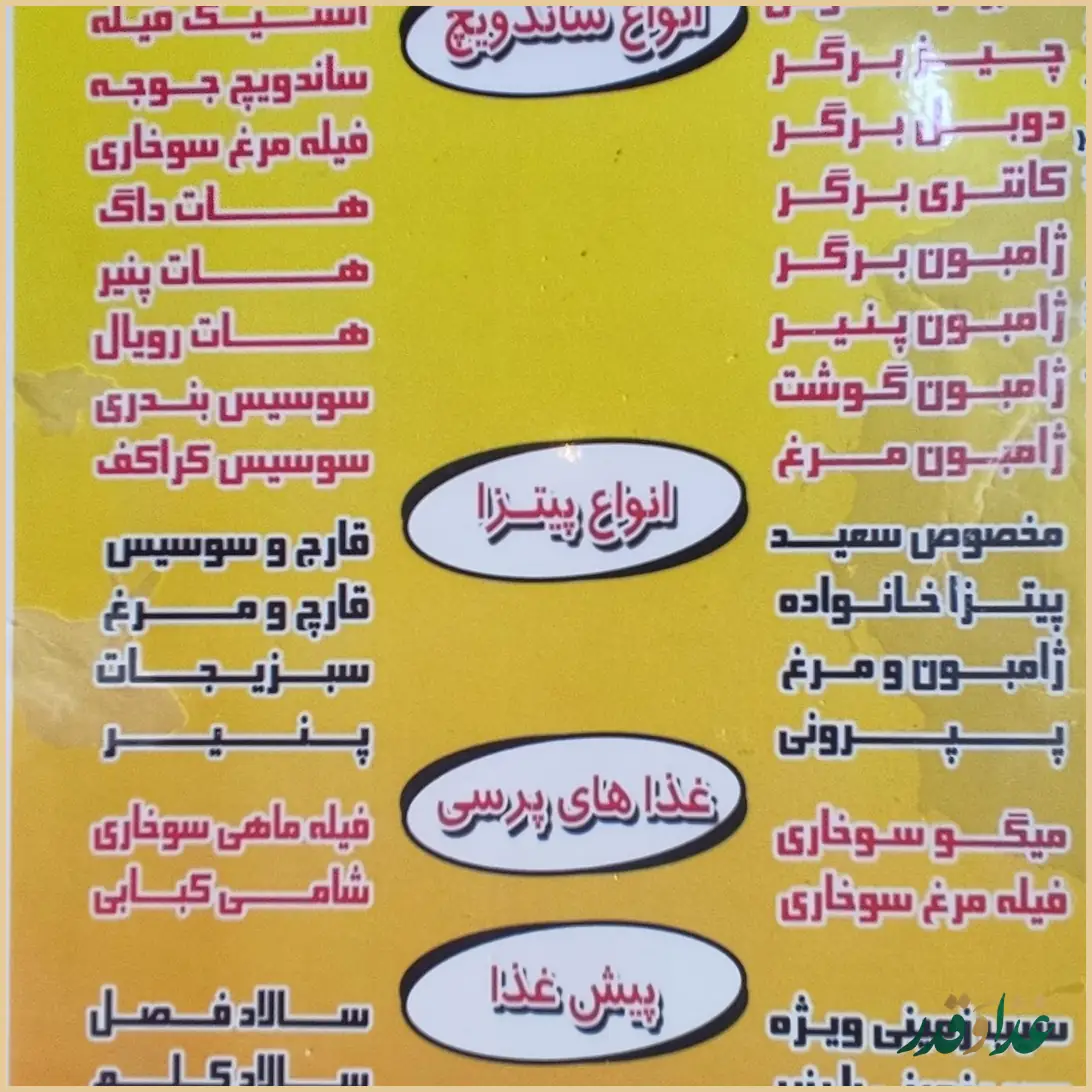 انواع ساندویچ
چیز برگر
دوبل برگر
کانتری برگر
ژامبون برگر
ژامبون پنیر
ژامبون گوشت
ژامبون مرغ
استیک فیله
ساندویچ جوجه
فیله مرغ سوخاری
هات داگ
هات پنیر
هات رویال
سوسیس بندری
سوسیس کراکف
انواع پیتزا
مخصوص سعید
پیتزا خانواده
ژامبون و مرغ
پپرونی
قارچ و سوسیس
قارچ و مرغ
سبزیجات
پنیر
غذا های پرسی
میگو سوخاری
فیله مرغ سوخاری
فیله ماهی سوخاری
شامی کبابی
پیش غذا
سیب زمینی ویژه
سالاد فصل
سالاد کلم